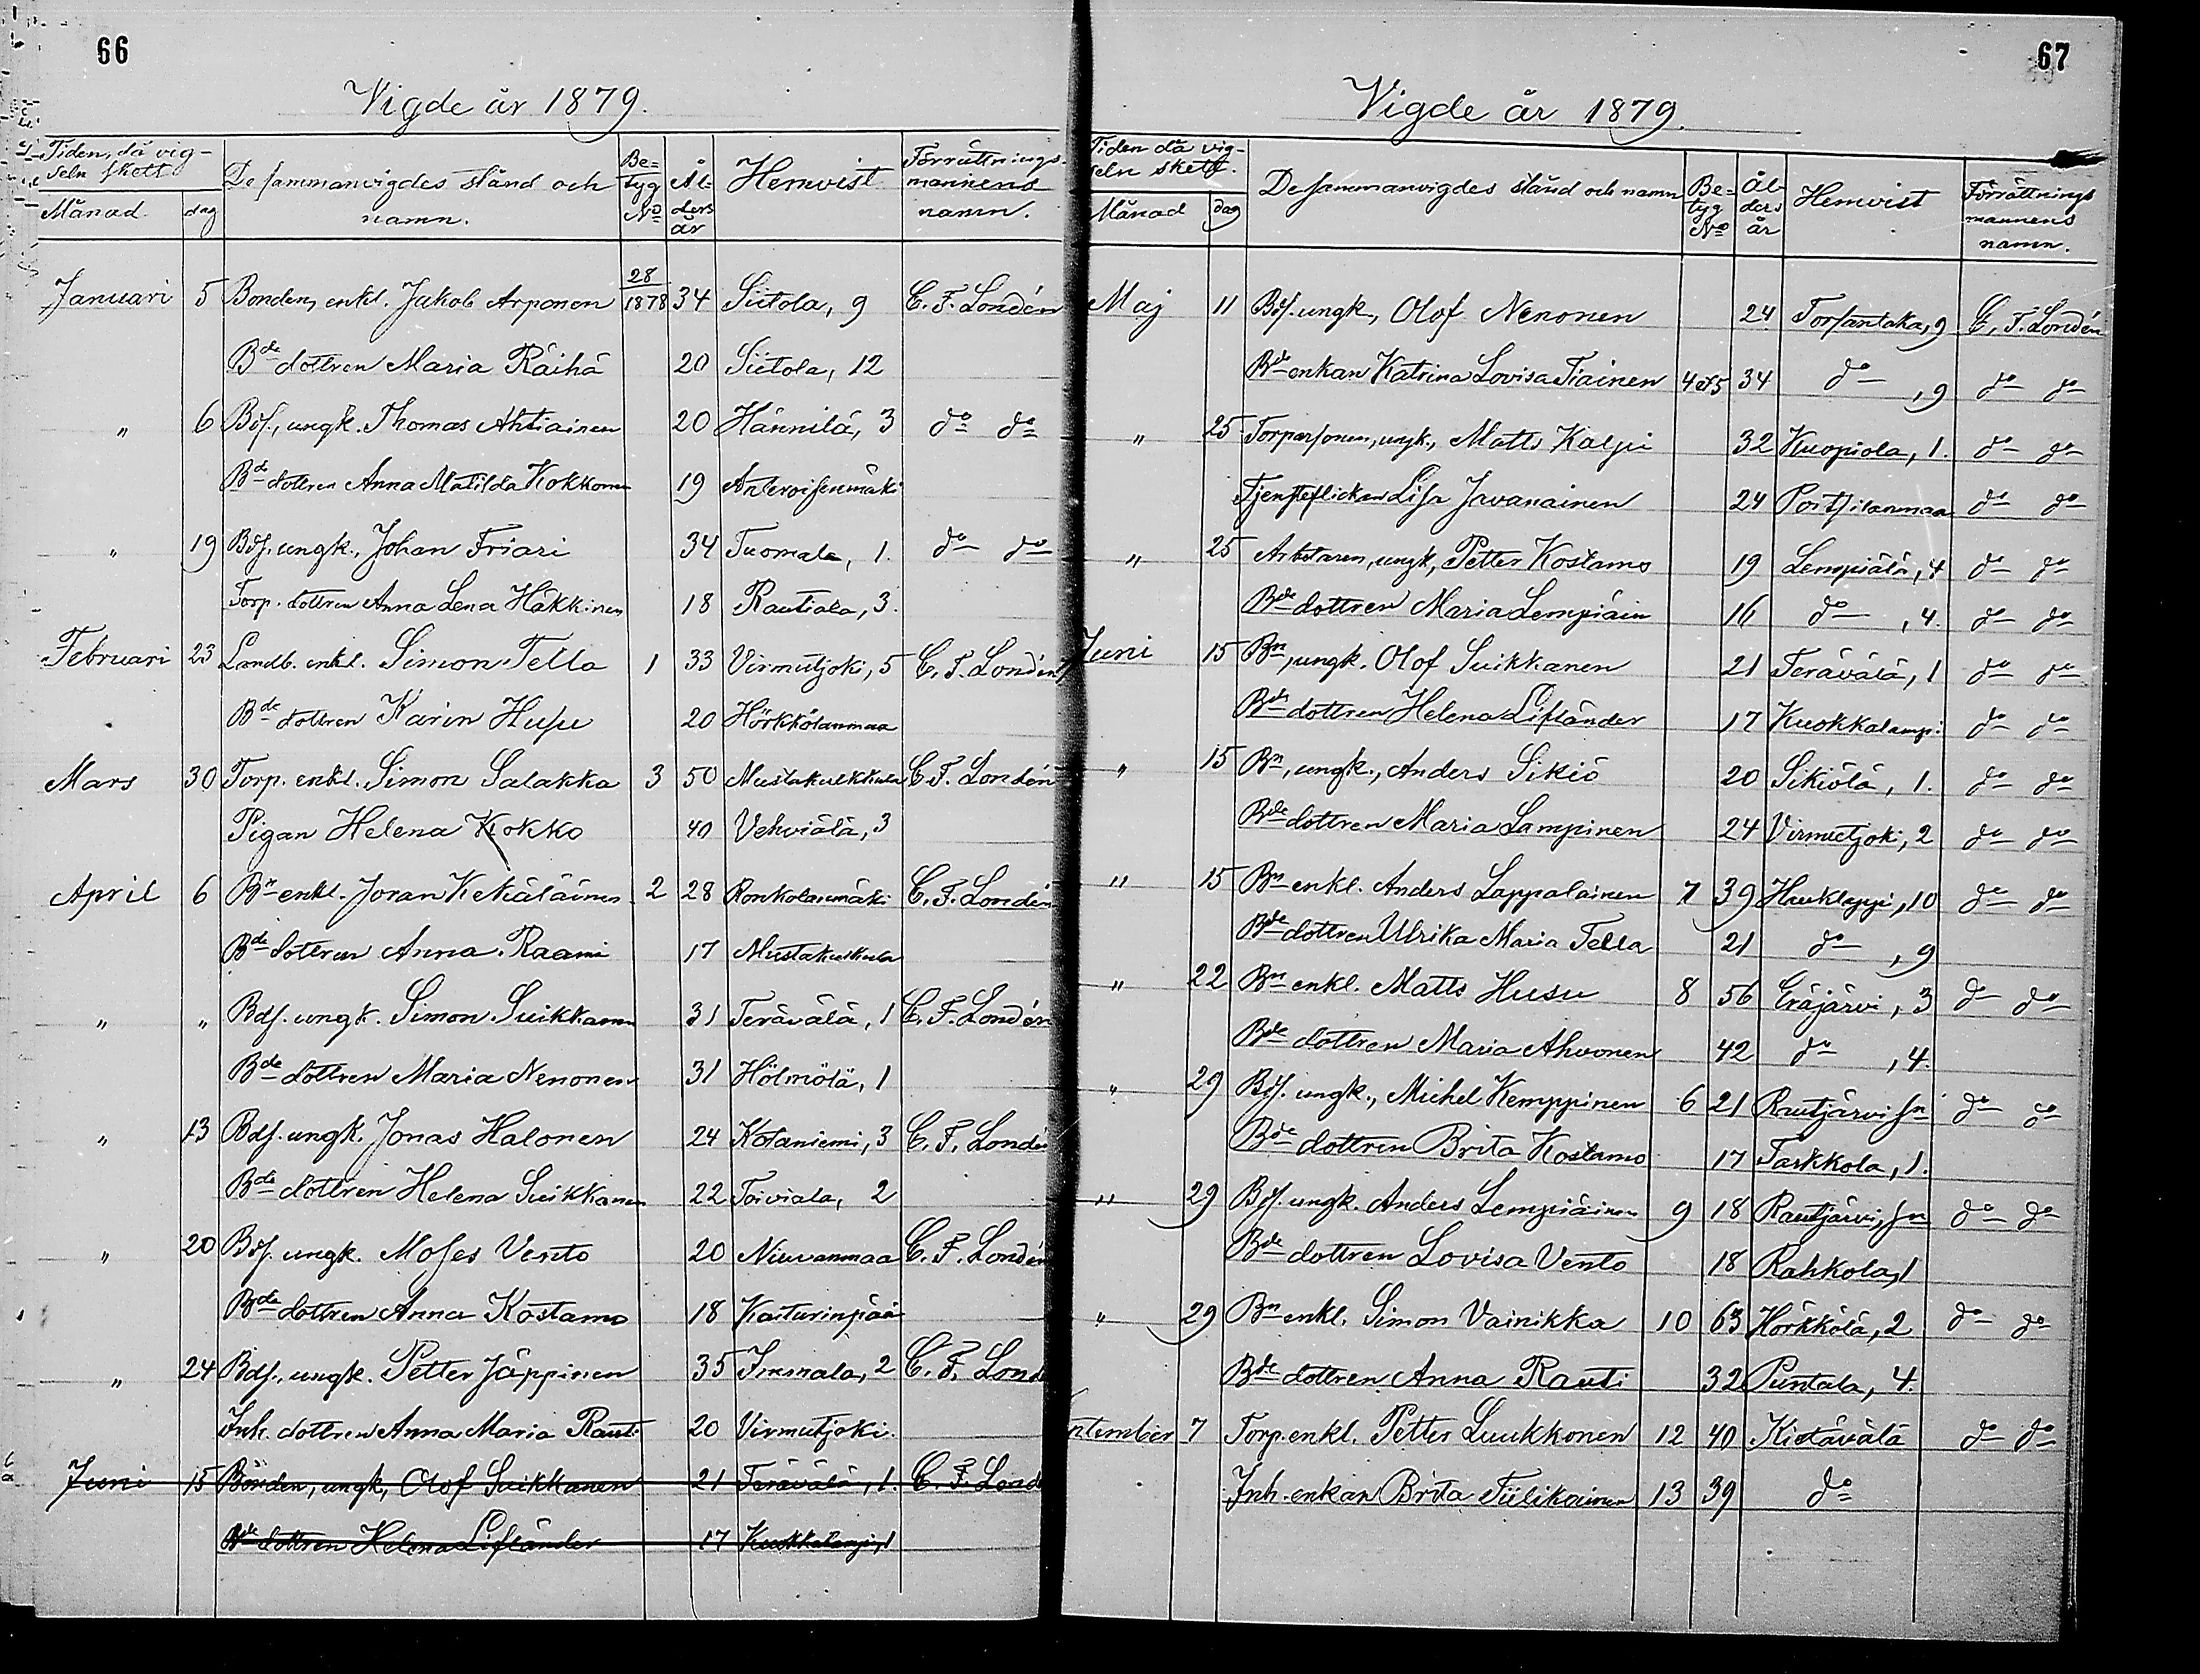 66
Vigde år 1879.
Tiden, då vigseln skett
De sammanvigdes stånd och namn.
Betyg No
Ålders år
Hemvist
Förrättningsmannens namn.
Månad. dag
Januari 5 Bonden, enkl. Jakob Arponen 28/1878 34 Siitola, 9 C. F. Londén
Bde dottren Maria Räihä 20 Siitola, 12
" 6 Bds., ungk. Thomas Ahtiainen 20 Hännilä, 3 do do
Bde dottren Anna Matilda Kokkonen 19 Anteroisenmäki
" 19 Bds. ungk., Johan Friari 34 Tuomala, 1. do do
Torp. dottren Anna Lena Häkkinen 18 Rautiala, 3.
Februari 23 Landb. enkl. Simon Tella 1 33 Virmutjoki, 5 C. F. Londén
Bde dottren Karin Husu 20 Hörkkölänmaa
Mars 30 Torp. enkl. Simon Salakka 3 50 Mustakulkkula C. F. Londén
Pigan Helena Kokko 40 Vehviälä, 3
April 6 Bn enkl. Joran Kekäläinen 2 28 Ronkolanmäki C. F. Londén
Bde dottren Anna Raami 17
" " Bds. ungk. Simon Suikkanen 31 Terävälä, 1 C. F. Londén
Bde dottren Maria Nenonen 31 Hölmölä, 1
" 13 Bds. ungk. Jonas Halonen 24 Kotaniemi, 3 C. F. Londén
Bde dottren Helena Suikkanen 22 Toiviala, 2
" 20 Bds. ungk. Moses Vento 20 Niuvanmaa C. F. Londén
Bde dottren Anna Kostamo 18 Kaiturinpää
" 24 Bds., ungk. Petter Jäppinen 35 Immala, 2 C. F. Lond
Inh. dottren Anna Maria Rauti 20 Virmutjoki.
Juni 15 Bonden, ungk, Olof Suikkanen 21 Terävälä, 1. C. F. Lond
Bde dottren Helena Lifländer 17 Kuokkalampi, 1
67
Vigde år 1879.
Tiden då vigseln skett.
De sammanvigdes stånd och namn
Betyg No
Ålders år
Hemvist
Förrättningsmannens namn.
Månad dag
Maj 11 Bds. ungk, Olof Nenonen 24 Torsantaka, 9 C. F. Londén
Bde enkan Katrina Lovisa Tiainen 4 et 5 34 do, 9 do do
" 25 Torparsonen, ungk., Matts Kalpi 32 Kuopiola, 1. do do
Tjensteflickan Lisa Javanainen 24 Portsilanmaa do do
" 25 Arbetaren, ungk, Petter Kostamo 19 Lempiälä, 4 do do
Bde dottren Maria Lempiäin 16 do, 4. do do
Juni 15 Bn, ungk. Olof Suikkanen 21 Terävälä, 1 do do
Bde dottren Helena Lifländer 17 Kuokkalampi do do
" 15 Bn, ungk., Anders Sikiö 20 Sikiölä, 1. do do
Bde dottren Maria Lampinen 24 Virmutjoki, 2 do do
" 15 Bn enkl. Anders Lappalainen 7 39 Haukleppi, 10 do do
Bde dottren Ulrika Maria Tella 21 do, 9
" 22 Bn enkl. Matts Husu 8 56 Eräjärvi, 3 do do
Bde dottren Maria Ahvonen 42 do, 4.
" 29 Bds. ungk., Michel Kemppinen 6 21 Rautjärvi sn do do
Bde dottren Brita Kostamo 17 Tarkkola, 1.
" 29 Bds. ungk. Anders Lempiäinen 9 18 Rautjärvi, sn do do
Bde dottren Lovisa Vento 18 Rahkola, 1
" 29 Bn enkl. Simon Vainikka 10 63 Hörkkölä, 2 do do
Bde dottren Anna Rauti 32 Puntala, 4.
ptember 7 Torp. enkl. Petter Luukkonen 12 40 Kietävälä do do
Inh. enkan Brita Tiilikainen 13 39 do